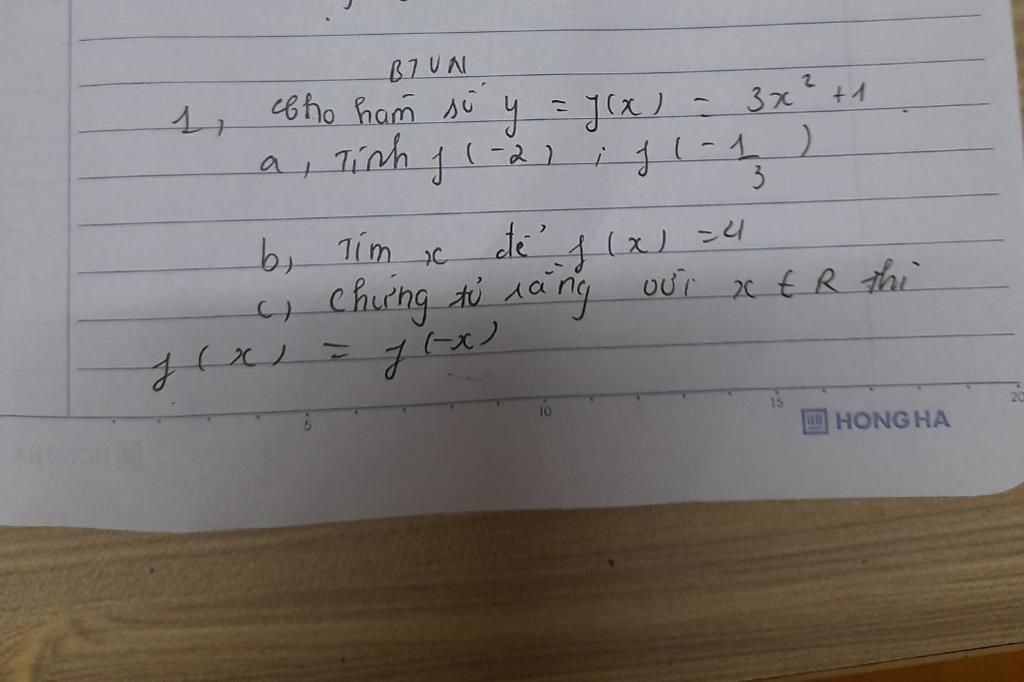 BTVN
1, Cho hàm số y = f(x) = 3x² + 1.
a, Tính f(-2) ; f(-1/3)
b, Tìm x để f(x) = 4
c, Chứng tỏ rằng với x ∈ R thì
f(x) = f(-x)
5 10 15 20
HONG HA